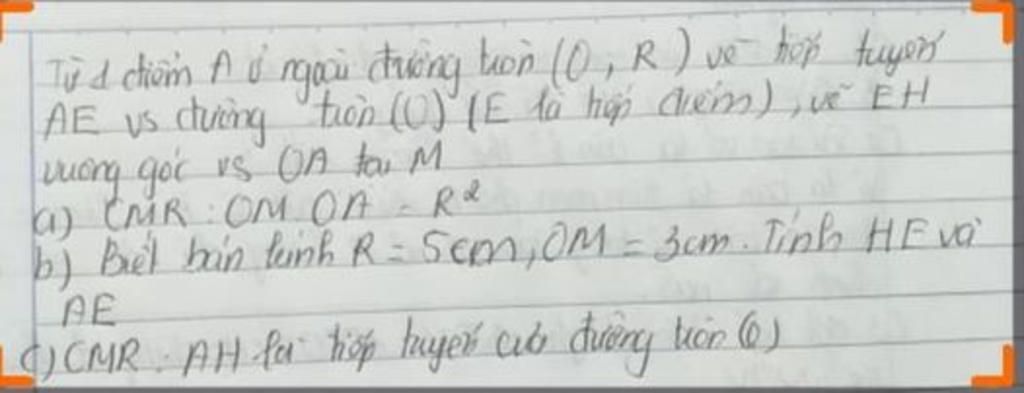 Từ 1 điểm A ở ngoài đường tròn (O, R) vẽ tiếp tuyến
AE vs đường tròn (O) (E là tiếp điểm), vẽ EH
vuông góc vs OA tại M
a) CMR : OM.OA = R²
b) Biết bán kính R = 5cm, OM = 3cm. Tính HE và
AE
c) CMR : AH là tiếp tuyến của đường tròn (O)